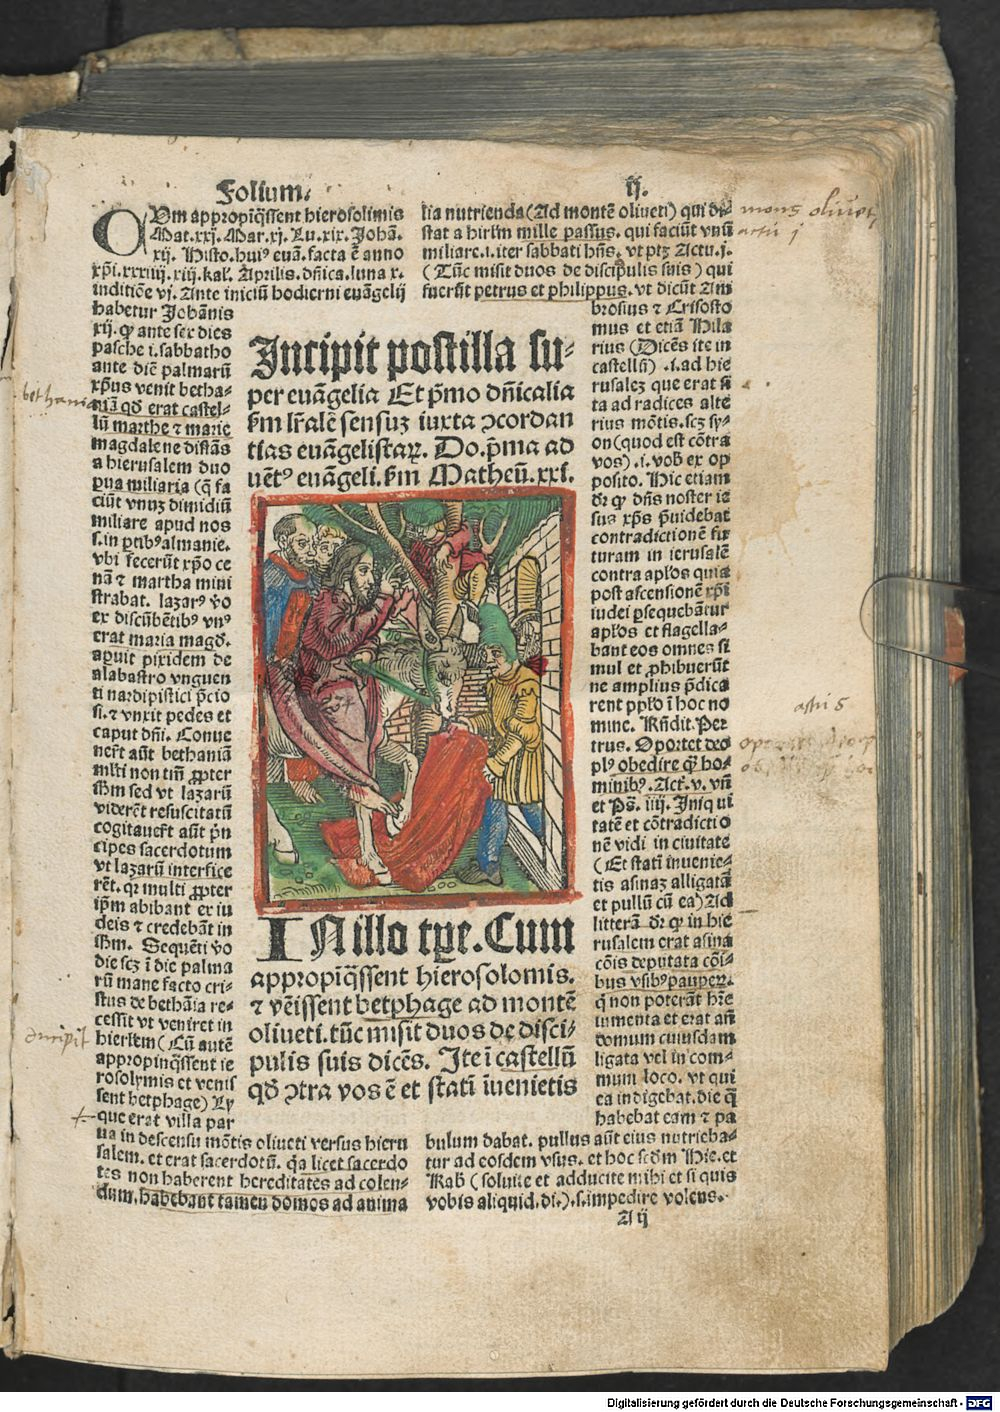 Folium. ij.
QVm appropīq̄ssent hierosolimis
Mat.xxj. Mar.xj. Lu.xix. Johā.
xij. Histo. huiꝰ euā. facta ē anno
xp̄i.xxxiiij.xiij.kal. Aprilis. dn̄ica. luna x.
inditiōe vj. Ante iniciū hodierni euāgelij
habetur Johānis
xij. ꝙ ante sex dies
pasche .i. sabbatho
ante diē palmarū
xp̄us venit betha-
niā qd̄ erat castel-
lū marthe ⁊ marie
magdalene distās
a hierusalem duo
pꝛua miliaria (q̄ fa
ciūt vnuꝫ dimidiū
miliare apud nos
s. in ꝑtibꝰ almanie.
vbi fecerūt xp̄o ce
nā ⁊ martha mini
strabat. lazarꝰ ꝟo
ex discūbētibꝰ vnꝰ
erat maria magd̄.
aꝑuit pixidem de
alabastro vnguen
ti nardipistici p̄cio
si. ⁊ vnxit pedes et
caput dn̄i. Conue
nerūt aūt bethaniā
mlti non tm̄ ꝓpter
ih̄m sed vt lazarū
viderēt resuscitatū
cogitauerūt aūt p̄n
cipes sacerdotum
vt lazarū interfice
rēt. qꝛ multi ꝓpter
ip̄m abibant ex iu
deis ⁊ credebāt in
ih̄m. Sequēti ꝟo
die scꝫ ī die palma
rū mane facto cri-
stus de bethāia re-
cessit vt veniret in
hierlem (Cū autē
appropinq̄ssent ie
rosolymis et venis
sent betphage) Ly
que erat villa par
ua in descensu mōtis oliueti versus hieru
salem. et erat sacerdotū. q̄a licet sacerdo
tes non haberent hereditates ad colen-
dum. habebant tamen domos ad anima
lia nutrienda (Ad montē oliueti) qui di-
stat a hirlm̄ mille passus. qui faciūt vnū
miliare .i. iter sabbati hn̄s. vt ptꝫ Actu.j.
(Tūc misit duos de discipulis suis) qui
fuerūt petrus et philippus. vt dicūt Am
brosius ⁊ Crisosto
mus et etiā Hila
rius (Dicēs ite in
castellū) .i. ad hie
rusaleꝫ que erat si
ta ad radices alte
rius mōtis. scꝫ sy-
on (quod est cōtra
vos) .i. vob̄ ex op
posito. Hic etiam
dr̄ ꝙ dn̄s noster ie
sus xp̄s p̄uidebat
contradictionē fu
turam in ierusalē
contra apl̄os quia
post ascensionē xp̄i
iudei ꝑsequebātur
apl̄os et flagella-
bant eos omnes si
mul et ꝓhibuerūt
ne amplius p̄dica
rent pplo ī hoc no
mine. Rn̄dit. Pe
trus. Oportet deo
plꝰ obedire q̄ꝫ ho-
minibꝰ. Act̄. v. vn̄
et Ps̄. liij. Iniqui
tatē et cōtradictio
nē vidi in ciuitate
(Et statī inuenie-
tis asinaꝫ alligatā
et pullū cū ea) Ad
litterā dr̄ ꝙ in hie
rusalem erat asina
cōis deputata cōi-
bus vsibꝰ pauperꝝ.
q̄ non poterāt hr̄e
iumenta et erat añ
domum cuiusdam
ligata vel in com-
mum loco. vt qui
ea indigebat. die q̄
habebat eam ⁊ pa
bulum dabat. pullus aūt eius nutrieba-
tur ad eosdem vsus. et hoc sc̄dm Hie. et
Rab (soluite et adducite mihi et si quis
vobis aliquid. di.) .s. impedire volens.
A ij
Incipit postilla su-
per euāgelia Et p̄mo dn̄icalia
s̄m lr̄alē sensuꝫ iuxta ↄcordan
tias euāgelistarꝝ. Do. p̄ma ad
uētꝰ euāgeli. s̄m Matheū. xxi.
IN illo tꝑe. Cum
appropīq̄ssent hierosolomis.
⁊ vēissent betphage ad montē
oliueti. tūc misit duos de disci-
pulis suis dicēs. Ite ī castellū
qd̄ ↄtra vos ē et statī īuenietis
bethania
mons oliueti
actu j
incipit
Digitalisierung gefördert durch die Deutsche Forschungsgemeinschaft - DFG